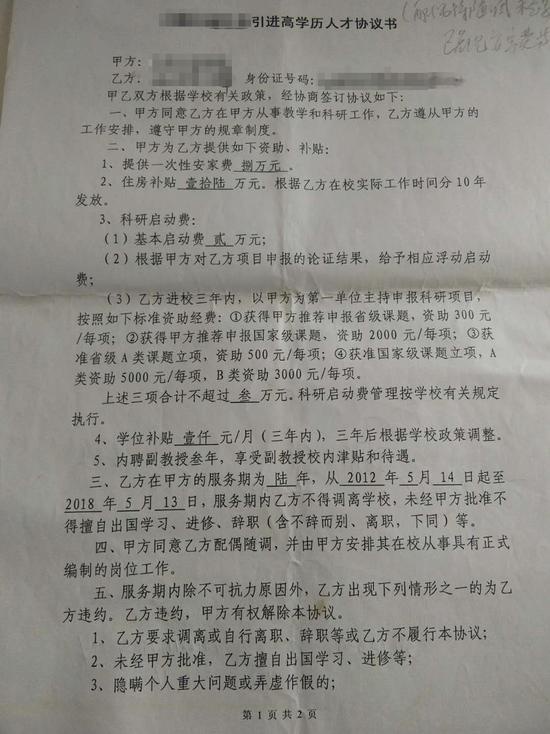 引进高学历人才协议书
甲方：
乙方： 身份证号码：
甲乙双方根据学校有关政策，经协商签订协议如下：
一、甲方同意乙方在甲方从事教学和科研工作，乙方遵从甲方的
工作安排，遵守甲方的规章制度。
二、甲方为乙方提供如下资助、补贴：
1、提供一次性安家费 捌万元 。
2、住房补贴 壹拾陆 万元。根据乙方在校实际工作时间分 10 年
发放。
3、科研启动费：
（1）基本启动费 贰 万元；
（2）根据甲方对乙方项目申报的论证结果，给予相应浮动启动
费；
（3）乙方进校三年内，以甲方为第一单位主持申报科研项目，
按照如下标准资助经费：①获得甲方推荐申报省级课题，资助 300 元
/每项；②获得甲方推荐申报国家级课题，资助 2000 元/每项；③获
准省级 A 类课题立项，资助 500 元/每项；④获准国家级课题立项，A
类资助 5000 元/每项，B 类资助 3000 元/每项。
上述三项合计不超过 叁 万元。科研启动费管理按学校有关规定
执行。
4、学位补贴 壹仟 元/月（三年内），三年后根据学校政策调整。
5、内聘副教授叁年，享受副教授校内津贴和待遇。
三、乙方在甲方的服务期为 陆 年，从 2012 年 5 月 14 日起至
2018 年 5 月 13 日，服务期内乙方不得调离学校，未经甲方批准不
得擅自出国学习、进修、辞职（含不辞而别、离职，下同）等。
四、甲方同意乙方配偶随调，并由甲方安排其在校从事具有正式
编制的岗位工作。
五、服务期内除不可抗力原因外，乙方出现下列情形之一的为乙
方违约。乙方违约，甲方有权解除本协议。
1、乙方要求调离或自行离职、辞职等或乙方不履行本协议；
2、未经甲方批准，乙方擅自出国学习、进修等；
3、隐瞒个人重大问题或弄虚作假的；
第 1 页 共 2 页